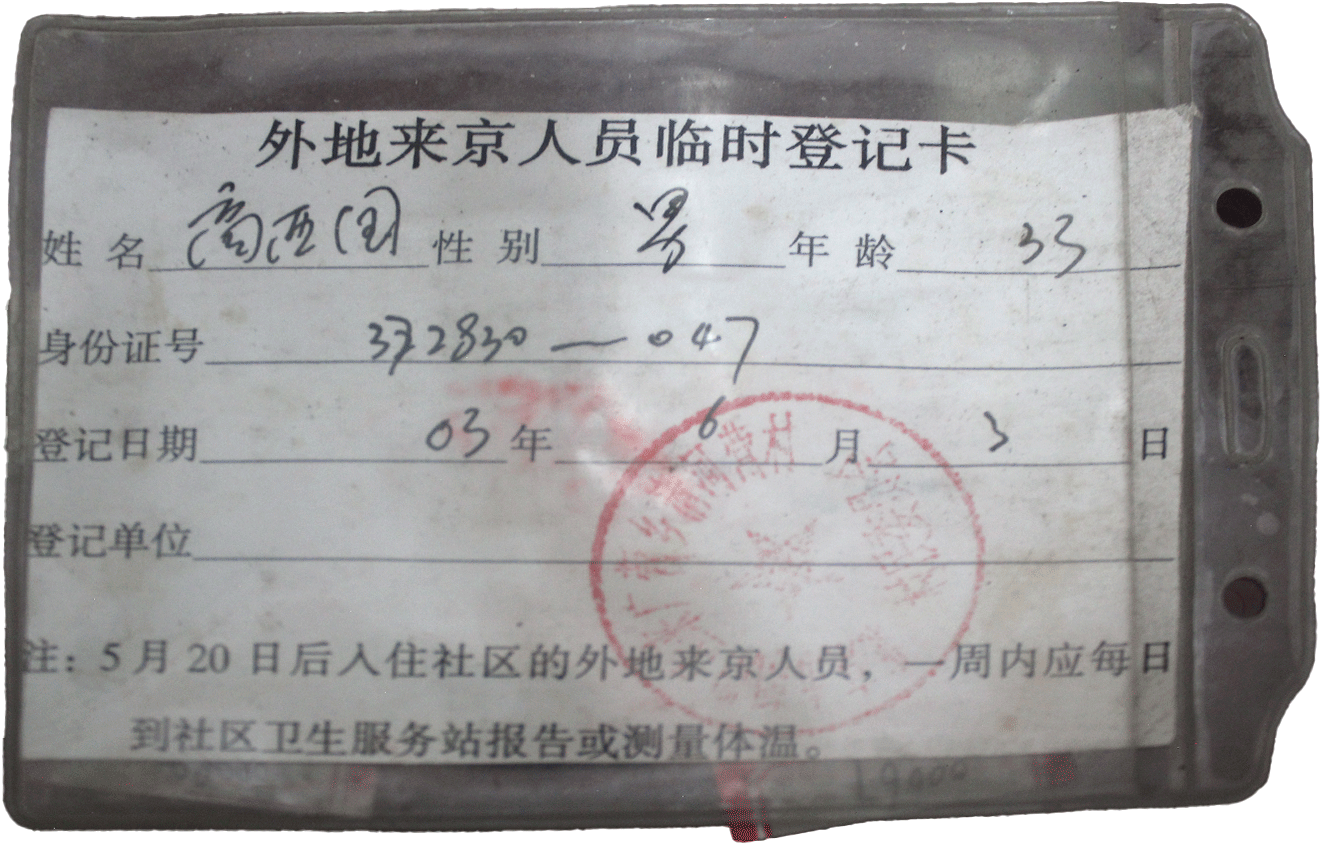 外地来京人员临时登记卡
姓名 高西国 性别 男 年龄 33
身份证号 372830—047
登记日期 03 年 6 月 3 日
登记单位
注：5月20日后入住社区的外地来京人员，一周内应每日
到社区卫生服务站报告或测量体温。